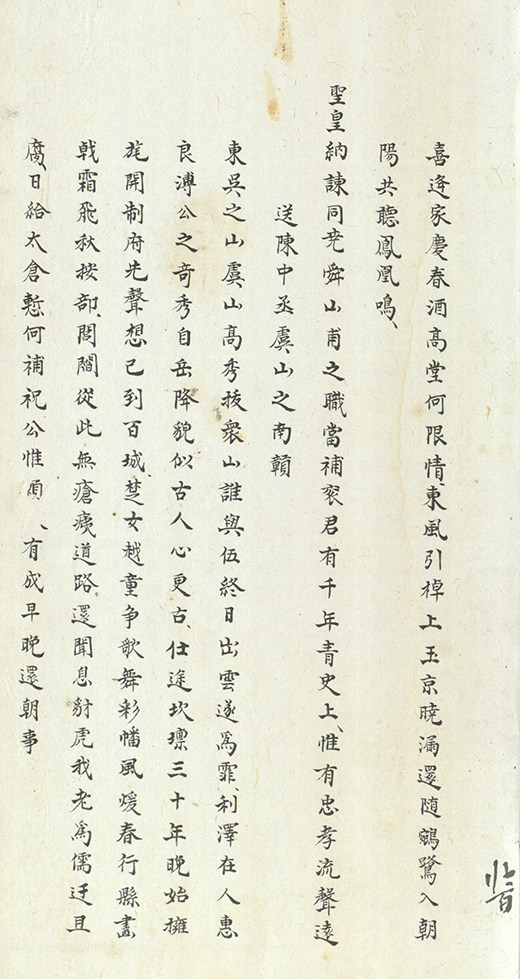 喜逢家慶春酒高堂何限情東風引棹上玉京曉漏還隨鵷鷺入朝
陽共聽鳳凰鳴、
聖皇納諫同堯舜山甫之職當補衮君有千年青史上惟有忠孝流聲遠
送陳中丞虞山之南贑
東吳之山虞山高秀拔衆山誰與伍終日出雲遂爲霏利澤在人惠
良溥公之竒秀自岳降貌似古人心更古仕途坎壈三十年晚始擁
旄開制府先聲想已到百城楚女越童争歌舞彩幡風煖春行縣畫
戟霜飛秋按部閭閻從此無瘡痍道路還聞息豺虎我老爲儒迂且
腐日給太倉慙何補祝公惟願、有成早晚還朝事